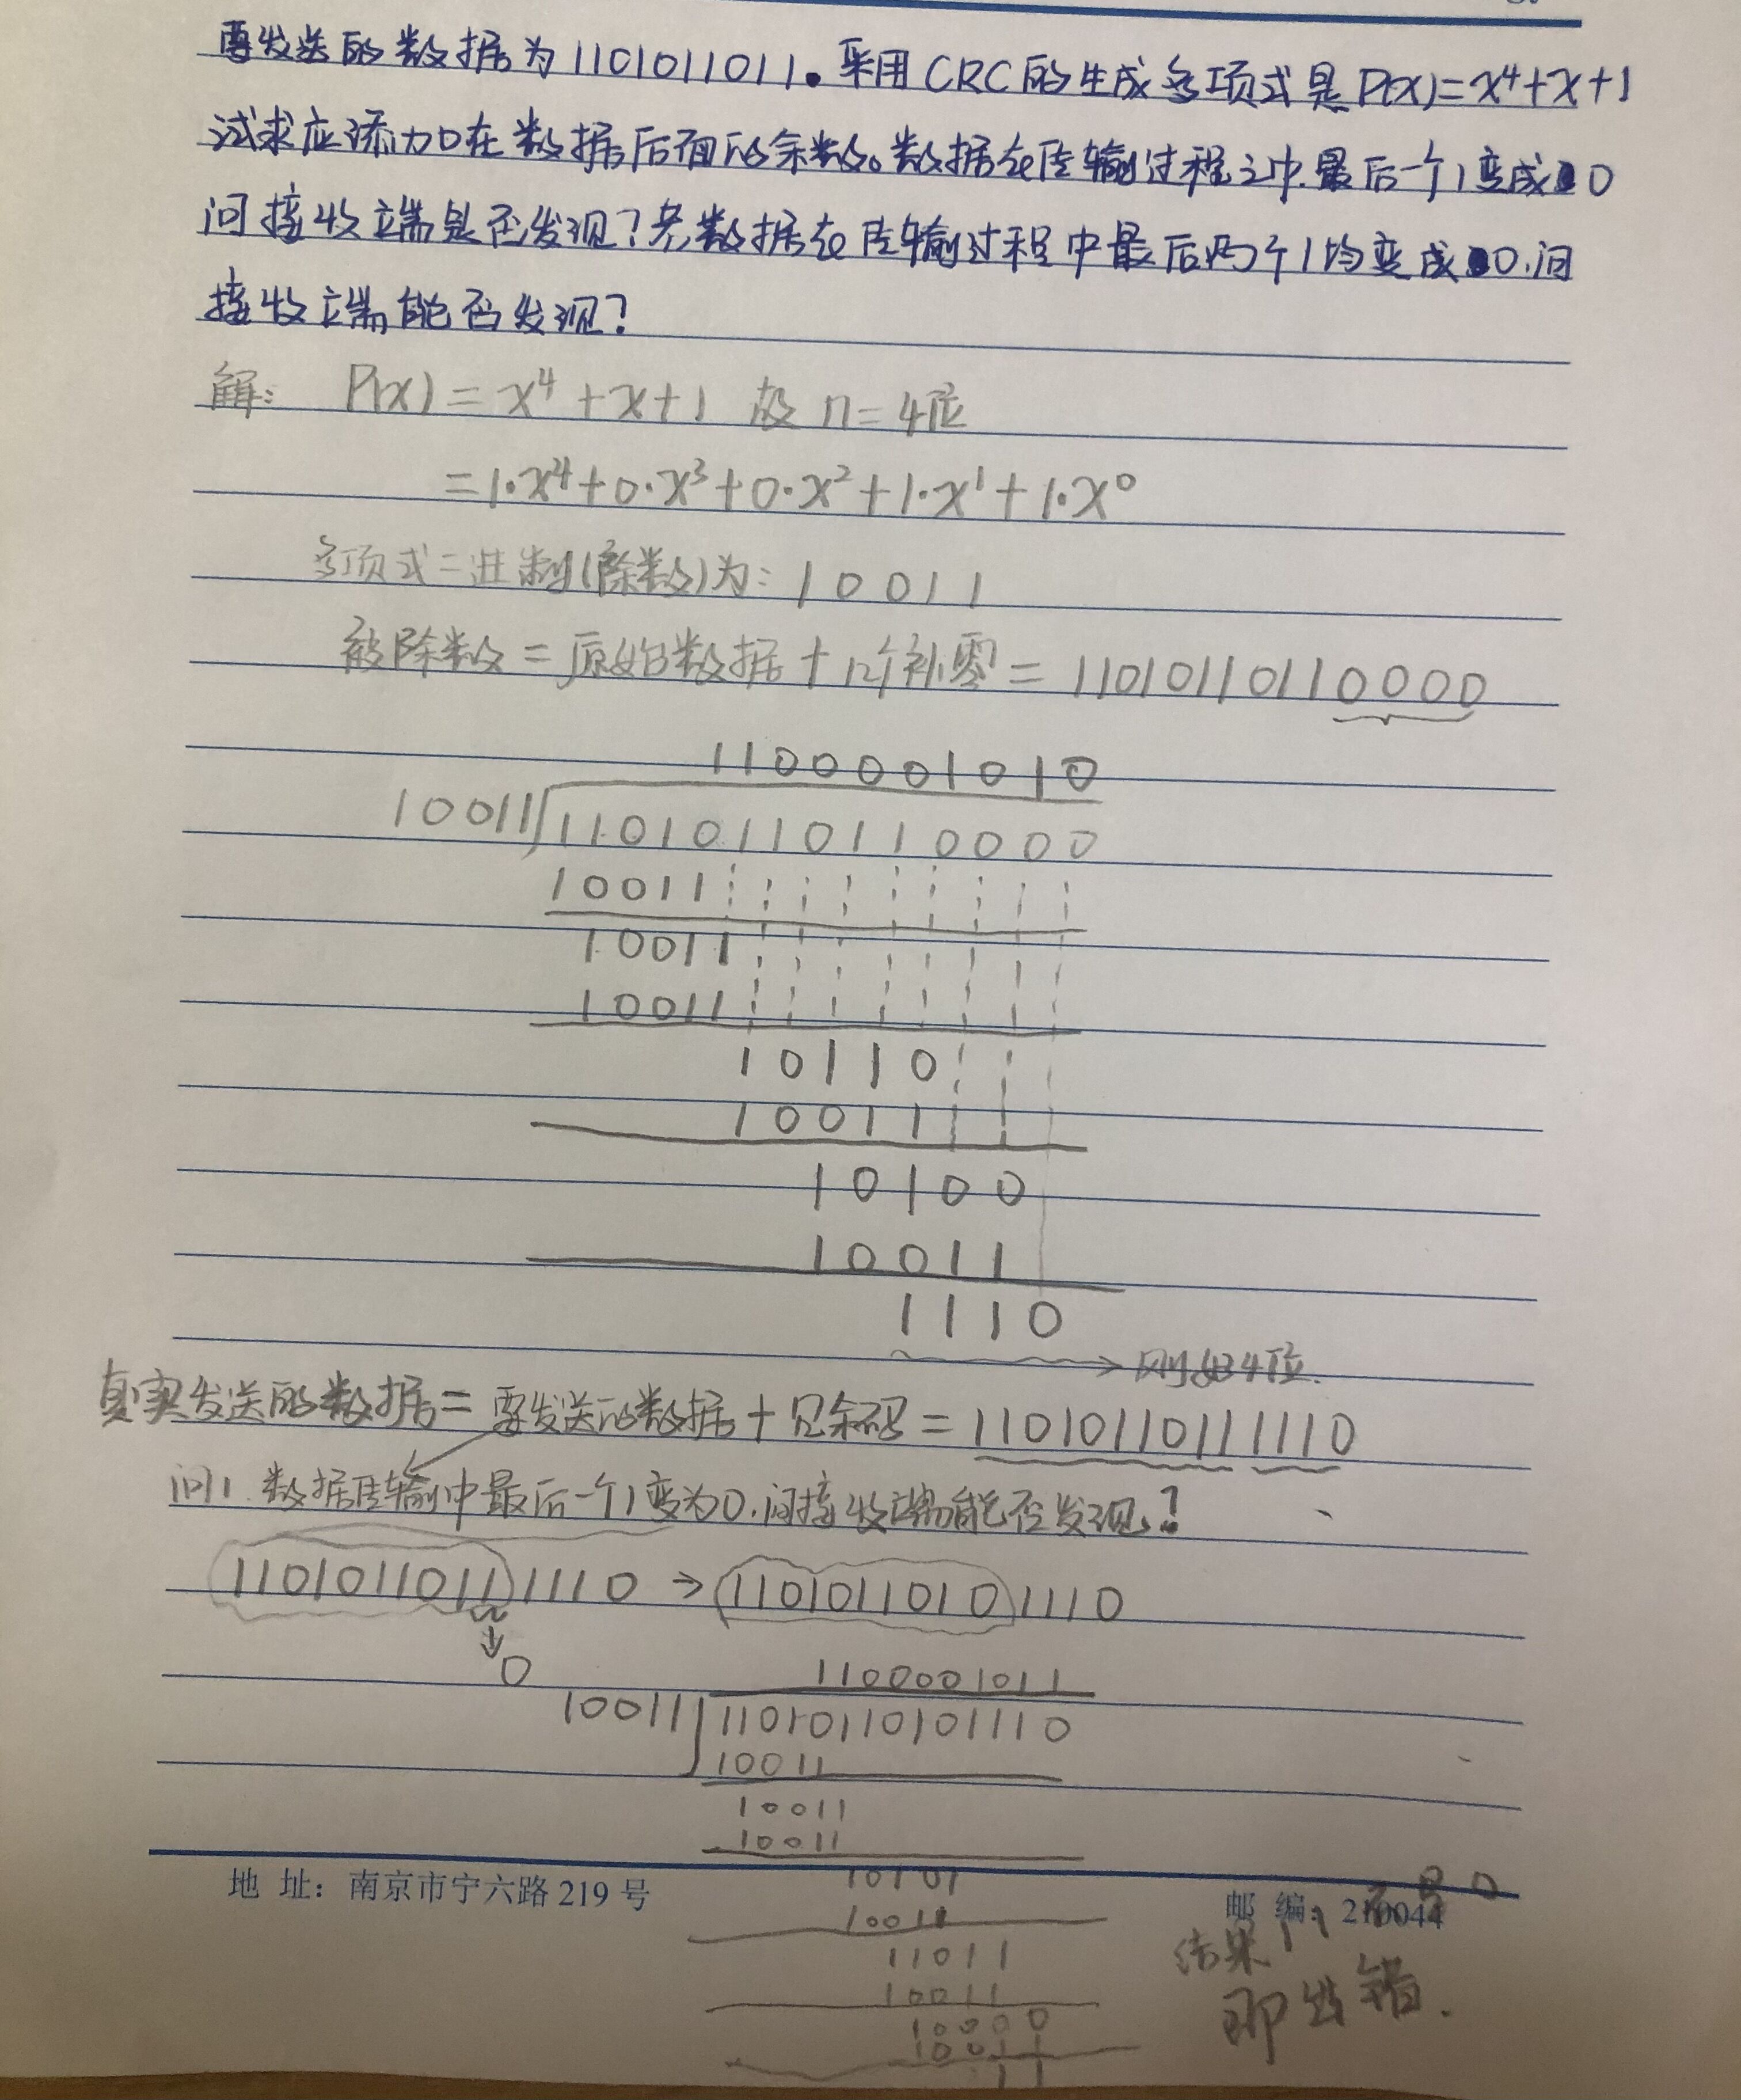 要发送的数据为1101011011。采用CRC的生成多项式是P(x)=x⁴+x+1
试求应添加在数据后面的余数。数据在传输过程之中最后一个1变成0
问接收端是否发现?若数据在传输过程中最后两个1均变成0.问
接收端能否发现?
解: P(x)=x⁴+x+1 故n=4位
=1·x⁴+0·x³+0·x²+1·x¹+1·x⁰
多项式二进制(除数)为: 10011
被除数=原始数据+n个补零=11010110110000
1100001010
10011 11010110110000
10011
10011
10011
10110
10011
10100
10011
1110
刚好4位.
真实发送的数据=要发送的数据+冗余码=11010110111110
问1.数据传输中最后一个1变为0.问接收端能否发现?
11010110111110→11010110101110
0
1100001011
10011 11010110101110
10011
10011
10011
10101
地 址: 南京市宁六路219号
邮 编: 210044
10011
11011
10011
10000
10011
11
结果11
即出错.